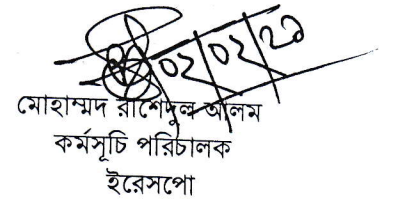 ০২/০২/২১
মোহাম্মদ রাশেদুল আলম
কর্মসূচি পরিচালক
ইরেসপো